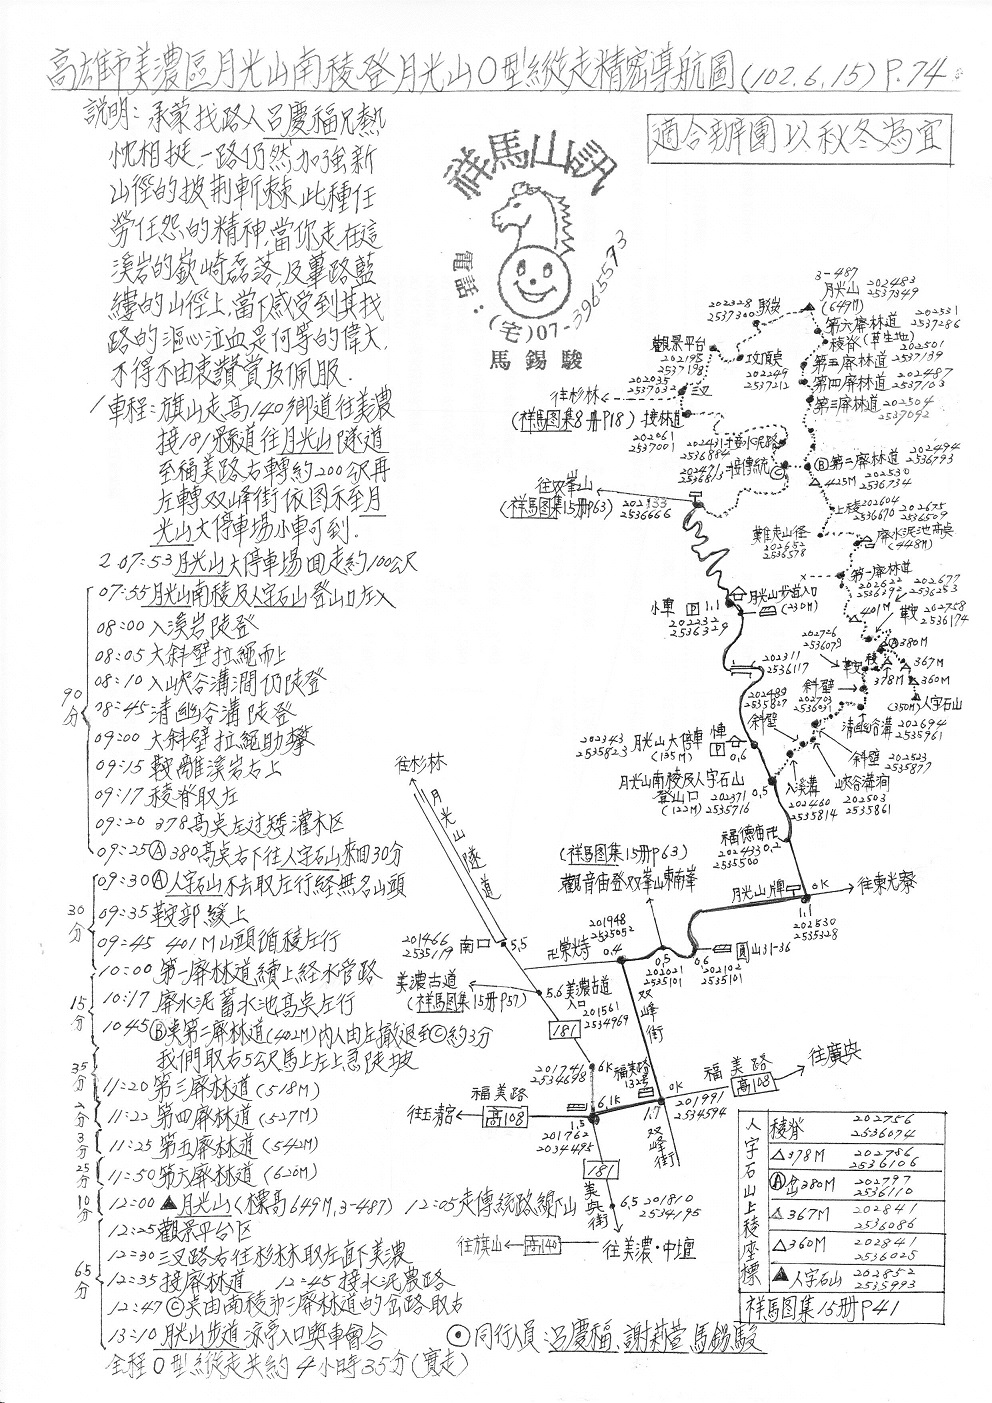 高雄市美濃區月光山南稜登月光山O型縱走精密導航圖(102.6.15)P.74
適合辦團以秋冬為宜
說明：承蒙找路人呂慶福兄熱
忱相挺，一路仍然加強新
山徑的披荆斬棘，此種任
勞任怨的精神，當你走在這
溪岩的嶔崎磊落，及蓽路藍
縷的山徑上，當下感受到其找
路的漚心泣血是何等的偉大，
不得不由衷讚賞及佩服.
祥馬山訊
電話：
(宅)07-3961573
馬錫駿
1車程：旗山走高140鄉道往美濃
接181縣道往月光山隧道
至福美路右轉約200公尺再
左轉双峰街依图示至月
光山大停車場小車可到.
2 07:53月光山大停車場回走約100公尺
07:55月光山南稜及人字石山登山口左入
08:00入溪岩陡登
08:05大斜壁拉繩而上
08:10入峽谷溝澗仍陡登
08:45清幽谷溝陡登
09:00大斜壁拉繩助攀
09:15鞍離溪岩右上
09:17稜脊取左
09:20 378高点左过矮灌木区
09:25Ⓐ380高点右下往人字石山來回30分
90分
09:30Ⓐ人字石山不去取左行経無名山頭
09:35鞍部緩上
09:45 401M山頭循稜左行
30分
10:00第一廢林道續上経水管路
10:17廢水泥蓄水池高点左行
15分
1045Ⓑ点第二廢林道(402M)內人由左撤退至Ⓒ約3分
我們取右5公尺馬上左上急陡坡
35分
11:20第三廢林道(518M)
2分
11:22第四廢林道(527M)
3分
11:25第五廢林道(542M)
25分
11:50第六廢林道(620M)
10分
12:00▲月光山(標高649M,3-487) 12:05走傳統路線下山
12:25觀景平台区
12:30三叉路右往杉林取左直下美濃
12:35接廢林道 12:45接水泥農路
12:47Ⓒ点由南稜第二廢林道的岔路取右
65分
13:10月光山步道涼亭入口與車會合
全程O型縱走共約4小時35分(實走)
⊙同行人員：呂慶福、謝莉萱、馬錫駿
3-487
月光山
(649M)
202483
2537349
第六廢林道
202531
2537286
稜脊(草生地)
第五廢林道
202501
2537139
第四廢林道
202487
2537103
第三廢林道
202504
2537092
202328
2537300
觀景平台
202195
2537198
攻頂点
202249
2537212
往杉林
202035
2537032
三叉
(祥馬図集8冊P18)
接林道
202061
2537001
202431
2536884
接水泥路
202471
2536813
接傳統Ⓒ
Ⓑ第二廢林道
202494
2536793
△425M
202530
2536734
往双峯山
(祥馬図集15冊P63)
202333
2536666
上稜
202604
2536670
202675
2536509
廢水泥池高点
(448M)
難走山徑
202652
2536578
第一廢林道
202622
2536292
202677
2536253
401M
鞍
202758
2536174
小車
P
1.1
月光山步道入口
(230M)
202232
2536329
202726
2536079
Ⓐ380M
367M
360M
378M
鞍
稜
(350M)人字石山
202311
2536117
202489
2535827
斜壁
斜壁
202703
2536031
清幽谷溝
202694
2535961
斜壁
202523
2535877
峽谷溝澗
202503
2535861
入溪溝
202460
2535814
202343
2535823
月光山大停車
(135M)
P
0.6
月光山南稜及人字石山
登山口
(122M)
202371
2535716
0.5
福德宙卍
202433
2535500
0.2
月光山牌
0K
往東光寮
1.1
202530
2535328
(祥馬图集15冊P63)
觀音宙登双峯山東南峯
201948
2535052
卍崇光寺
0.4
0.5
202021
2535101
0.6
202102
2535101
圓山31-36
往杉林
月光山隧道
201466
2535119
南口
5.5
美濃古道
(祥馬図集15冊P57)
5.6
美濃古道
入口
201561
2534969
181
双峰街
201741
2534698
6K
6.1K
福美路
132号
0K
福美路
高108
往廣興
1.7
201991
2534594
福美路
往玉清宮
高108
1.5
201762
2034495
双峰街
181
美興街
6.5
201810
2534195
往旗山
高140
往美濃·中壇
人字石山上稜座標
稜脊 202756 2536074
△378M 202786 2536106
Ⓐ380M 202797 2536110
△367M 202841 2536086
△360M 202841 2536025
▲人字石山 202852 2535993
祥馬图集15冊P41